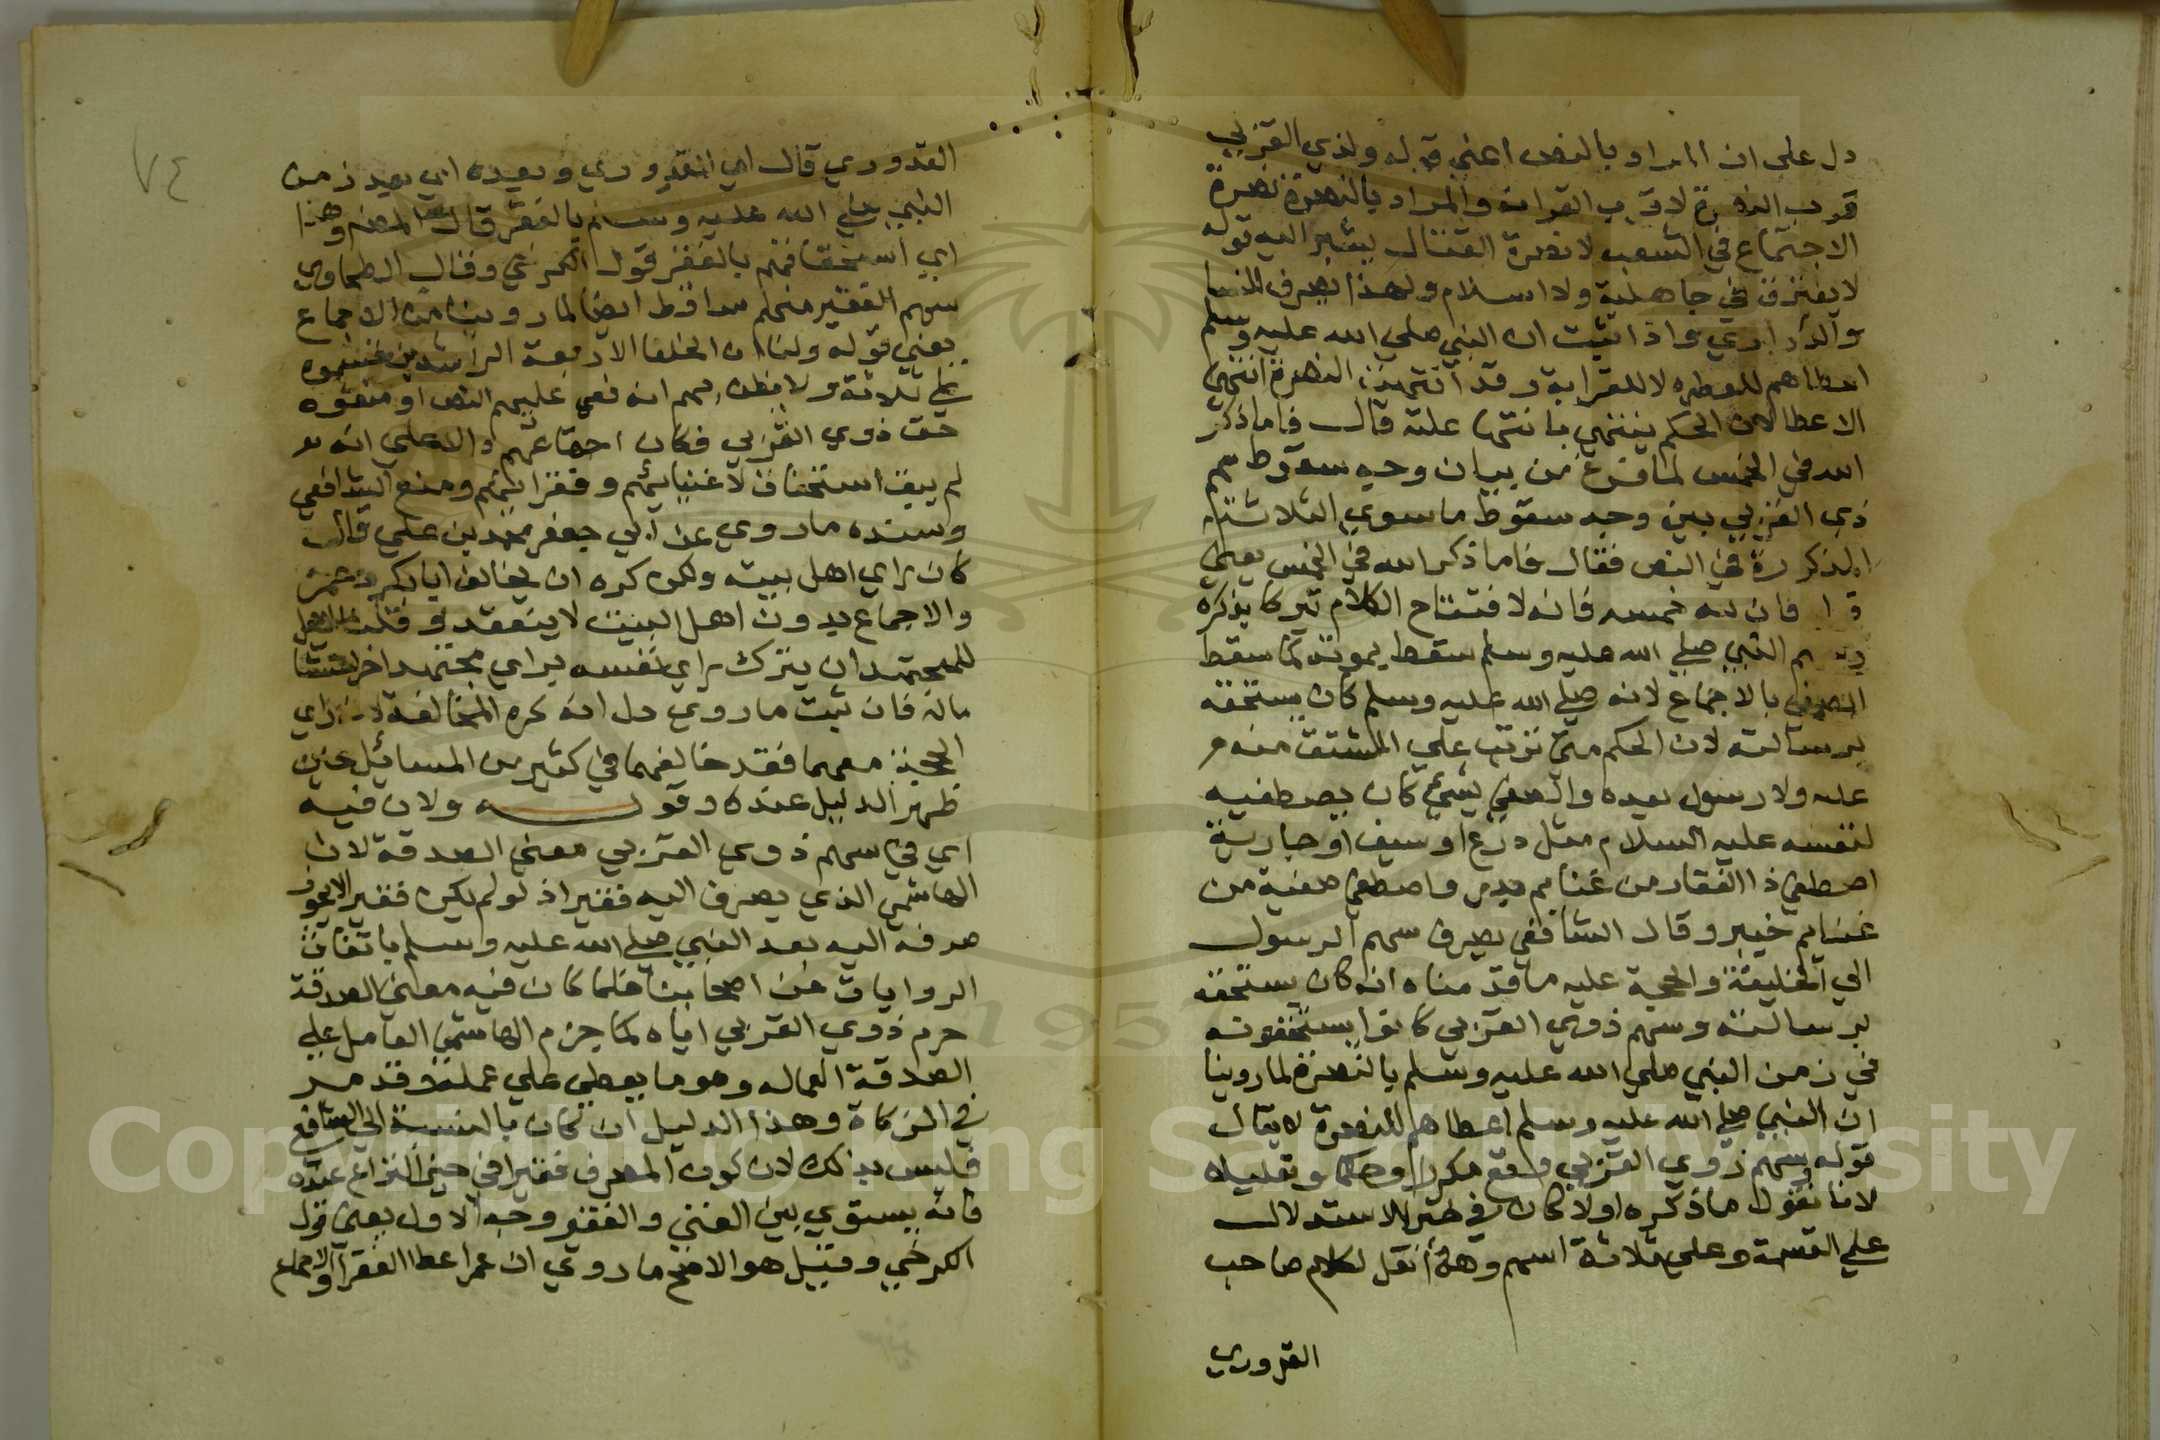 دل على ان المراد بالنص اعني قوله ولذي القربي
قرب النصرة لا قرب القرابة والمراد بالنصرة نصرة
الاجتماع في الشعب لا نصرة القتال يشير اليه قوله
لا يفترق في جاهلية ولا اسلام ولهذا يصرف للنسا
والذراري واذا ثبت ان النبي صلي الله عليه وسلم
اعطاهم للنصره لا للقرابة وقد انتهت النصرة انتهي
الاعطا لان الحكم ينتهي بانتهاء علته قال فاما ذكر
الله في الخمس لما فرغ من بيان وجه سقوط سهم
ذي القربي بين وجه سقوط ما سوي الثلاثة
المذكورة في النص فقال فاما ذكر الله في الخمس يعني
فان لله خمسه فانه لافتتاح الكلام تبركا بذكره
وسهم النبي صلي الله عليه وسلم سقط بموته كما سقط
الصفي بالاجماع لانه صلي الله عليه وسلم كان يستحقه
برسالته لان الحكم متي ترتب علي المشتق منه
عله ولا رسول بعده والصفي شيء كان يصطفيه
لنفسه عليه السلام مثل درع او سيف او جارية
اصطفي ذا الفقار من غنايم بدر واصطفي صفية من
غنايم خيبر وقال الشافعي يصرف سهم الرسول
الي الخليفة والحجة عليه ما قدمناه انه كان يستحقه
برسالته وسهم ذوي القربي كانوا يستحقونه
في زمن النبي صلي الله عليه وسلم بالنصرة لما روينا
ان النبي صلي الله عليه وسلم اعطاهم للنصرة لا يقال
قوله وسهم ذوي القربي وقع مكررا وحكما وتعليلا
لانا نقول ما ذكره اولا كان في حيز الاستدلال
علي القسمة وعلي ثلاثة اسهم وهنا نقل لكلام صاحب
القدوري
٧٤
القدوري قال اي القدوري وبعده اي بعد زمن
النبي صلي الله عليه وسلم بالفقر قال المصنف وهذا
اي استحقاقهم بالفقر قول الكرخي وقال الطحاوي
سهم الفقير منهم ساقط ايضا لما روينا من الاجماع
يعني قوله ولنا ان الخلفا الاربعة الراشدين قسموه
علي ثلاثة ولا يظن بهم انه خفي عليهم النص او منعوه
حق ذوي القربي فكان اجماعهم دالا علي انه
لم يبق استحقاق لاغنيائهم وفقرائهم ومنع الشافعي
وسنده ما روي عن ابي جعفر محمد بن علي قال
كان راي اهل بيته ولكن كره ان يخالف ابا بكر وعمر
والاجماع بدون اهل البيت لا ينعقد وقلنا
للمجتهد ان يترك راي نفسه براي مجتهد اخر
ماله فان ثبت ما روي دل انه كره المخالفة لانه راي
الحجة معهما فقد خالفهما في كثير من المسائل حين
ظهر الدليل عنده وقوله ولان فيه
اي في سهم ذوي القربي معني الصدقة لان
الهاشمي الذي يصرف اليه فقير اذ لو لم يكن فقيرا لا يجوز
صرفه اليه بعد النبي صلي الله عليه وسلم باتفاق
الروايات عن اصحابنا فلما كان فيه معني الصدقة
حرم ذوي القربي اياه كما حرم الهاشمي العامل علي
الصدقة العماله وهو ما يعطي علي عمله وقد مر
في الزكاة وهذا الدليل ان كان بالنسبة الي الشافعي
فليس بذلك لان كون المصرف فقيرا في حيز النزاع عنده
فانه يستوي بين الغني والفقير وجه الاول يعني قول
الكرخي وقيل هو الاصح ما روي ان عمر اعطا الفقرا والاجماع